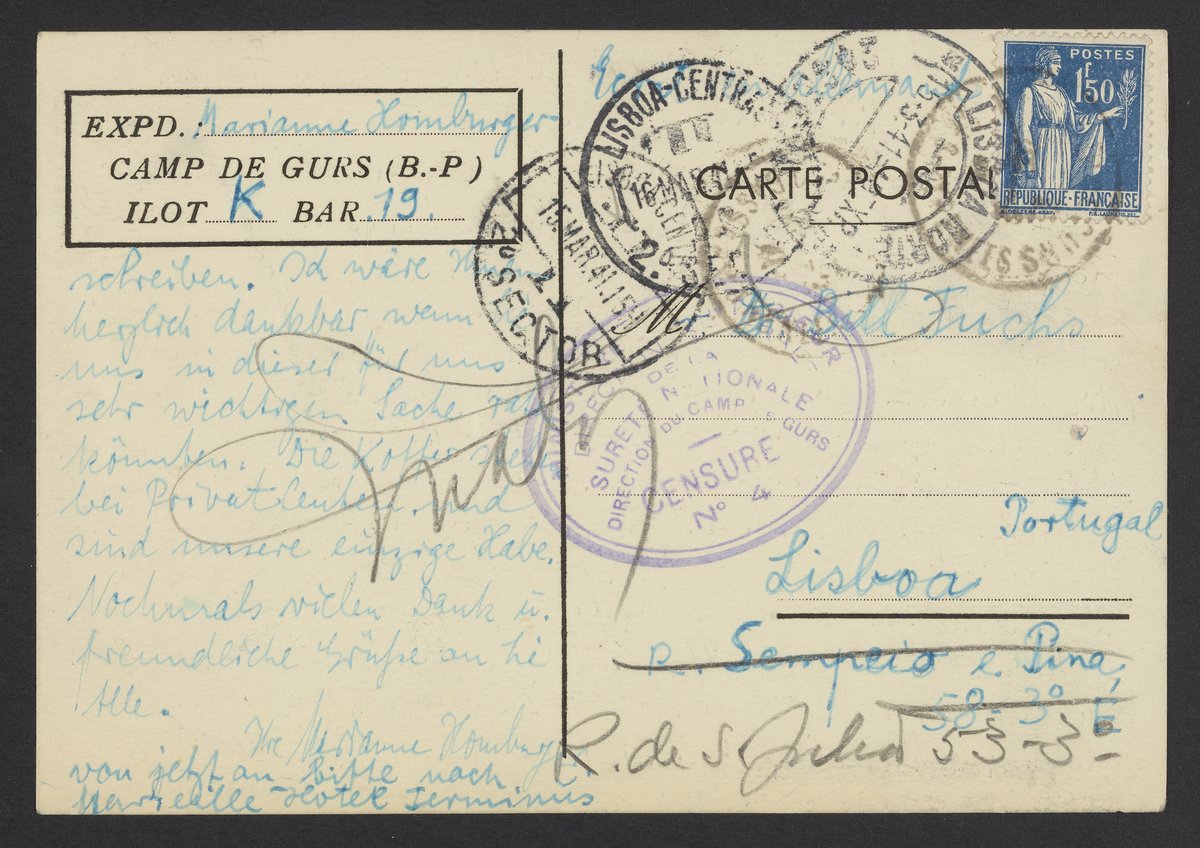 EXPD.: Marianne Homburger
CAMP DE GURS (B.-P)
ILOT K BAR. 19.
schreiben. Ich wäre Ihnen
herzlich dankbar wenn
uns in dieser für uns
sehr wichtigen Sache
könnten. Die Koffer
bei Privat und
sind unsere einzige Habe.
Nochmals vielen Dank u.
freundliche Grüße an
Alle.
Ihre Marianne Homburger
von jetzt an bitte nach
Marseille Hotel Terminus
CARTE POSTALE
POSTES
1f50
RÉPUBLIQUE-FRANÇAISE
LISBOA-CENTRAL
2.
LISBOA NORTE
2º SECTOR
15 MAR. 41
SURETE NATIONALE
DIRECTION DU CAMP DE GURS
CENSURE
Nº 4
Mr
Fuchs
Portugal
Lisboa
R. Sempeio e. Pina,
58-3º E
R. de S. Julião 53-3º